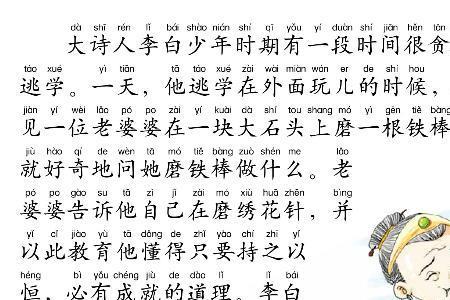 dà shī rén lǐ bái shào nián shí qī yǒu yí duàn shí jiān hěn tān
大诗人李白少年时期有一段时间很贪
táo xué yì tiān tā táo xué zài wài miàn wán er de shí hou
逃学。一天，他逃学在外面玩儿的时候，
jiàn yí wèi lǎo pó po zài yí kuài dà shí tou shang mó yì gēn tiě bàng
见一位老婆婆在一块大石头上磨一根铁棒
jiù hào qí de wèn tā mó tiě bàng zuò shén me lǎo
就好奇地问她磨铁棒做什么。老
pó po gào su tā zì jǐ zài mó xiù huā zhēn bìng
婆婆告诉他自己在磨绣花针，并
yǐ cǐ jiào yù tā dǒng de zhǐ yào chí zhī yǐ
以此教育他懂得只要持之以
héng bì yǒu chéng jiù de dào lǐ lǐ bái
恒，必有成就的道理。李白